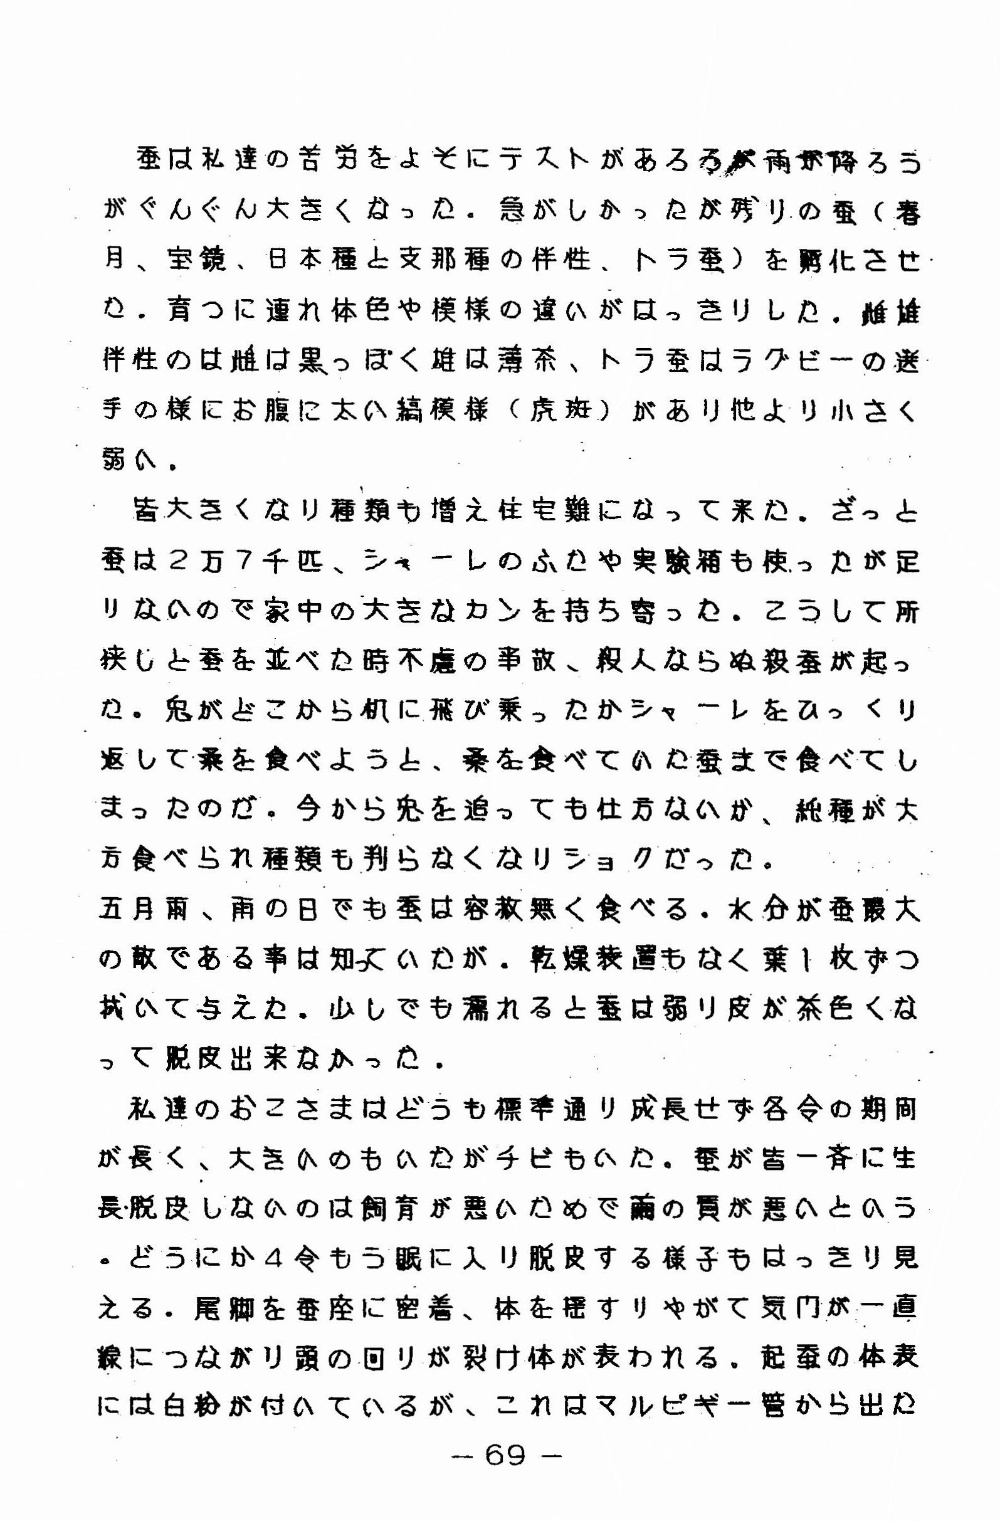 蚕は私達の苦労をよそにテストがあろうが雨が降ろう
がぐんぐん大きくなった．急がしかったが残りの蚕（春
月、宝鏡、日本種と支那種の伴性、トラ蚕）を孵化させ
た．育つに連れ体色や模様の違いがはっきりした．雌雄
伴性のは雌は黒っぽく雄は薄茶、トラ蚕はラグビーの選
手の様にお腹に太い縞模様（虎斑）があり他より小さく
弱い．
　皆大きくなり種類も増え住宅難になって来た．ざっと
蚕は２万７千匹、シャーレのふたや実験箱も使ったが足
りないので家中の大きなカンを持ち寄った．こうして所
狭しと蚕を並べた時不慮の事故、殺人ならぬ殺蚕が起っ
た。兎がどこから机に飛び乗ったかシャーレをひっくり
返して桑を食べようと、桑を食べていた蚕まで食べてし
まったのだ。今から兎を追っても仕方ないが、純種が大
方食べられ種類も判らなくなりショクだった。
五月雨、雨の日でも蚕は容赦無く食べる．水分が蚕最大
の敵である事は知っていたが．乾燥装置もなく葉１枚ずつ
拭いて与えた．少しでも濡れると蚕は弱り皮が茶色くな
って脱皮出来なかった．
　私達のおこさまはどうも標準通り成長せず各令の期間
が長く、大きいのもいたがチビもいた。蚕が皆一斉に生
長脱皮しないのは飼育が悪いためで繭の質が悪いという
。どうにか４令もう眠に入り脱皮する様子もはっきり見
える．尾脚を蚕座に密着、体を揺すりやがて気門が一直
線につながり頭の回りが裂け体が表われる．起蚕の体表
には白粉が付いているが、これはマルピギー管から出た
－69－